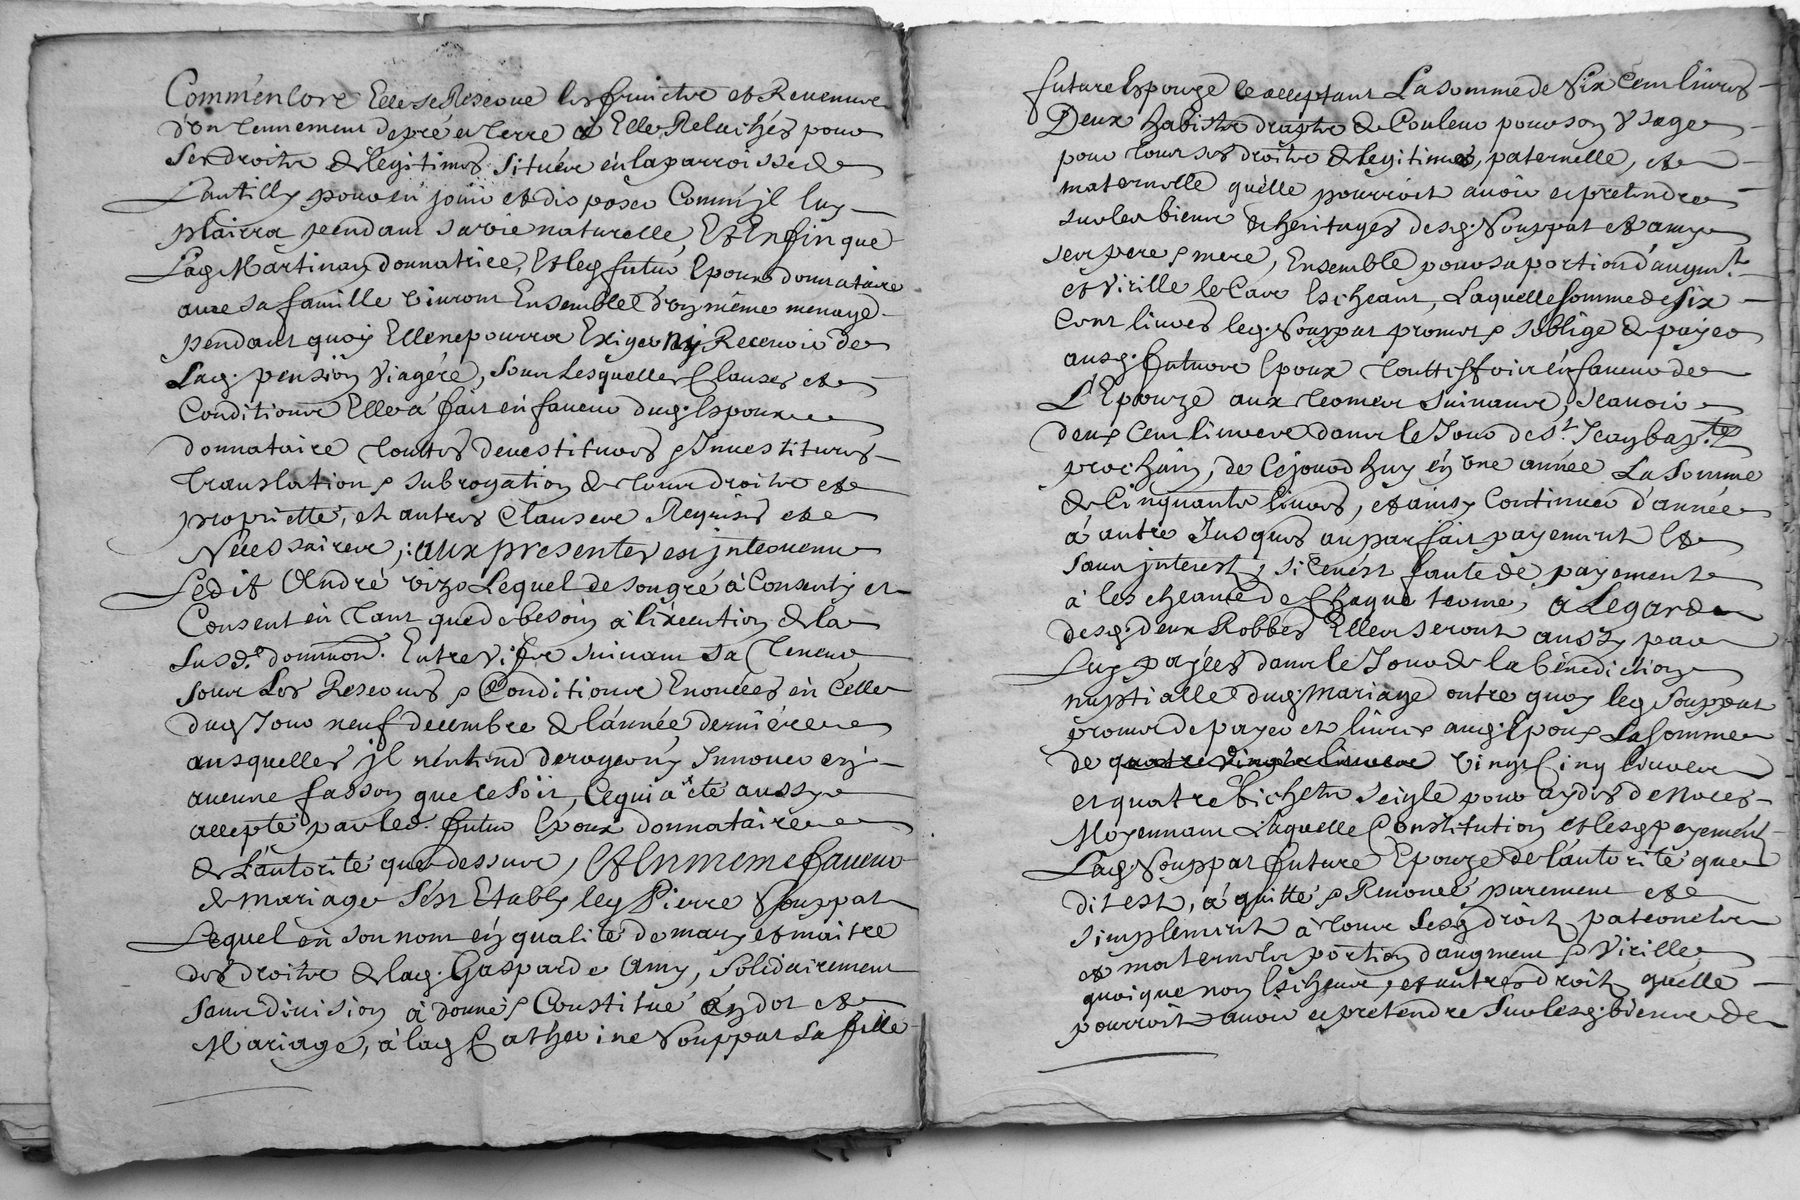 Comméncore Elle se Reserve les fruictes et Revennues
d'on tennement de pré et terre a Elle Relachés pour
ses droits & legitimes situéve én la parroisse de
Lantilly pour en joüir et disposer Comm'jl luy
plairra pendant sa vie naturelle, Et Enfin que
Lag. Martinan donnatrice, Et leg. futur Epoux donnataire
avec sa famille vivront Ensemble d'un même menage
pendant quoy Elle ne pourra Exiger ny Recevoir de
Lag. pension viagére, sous Lesquelles Clauses et
Conditions Elle a fait én faveur dug. Espoux
donnataire touttes devestitures & Investitures
translation & subrogation de tous droits et
proprietté, et autres Clauses Requises et
Nécessaires, : aux presentes est jntervenu
Ledit André vizo Lequel de son gré à Consenty et
Consent én tant que de besoin à l'éxecution de la
susd.e donnaon. Entre vifs suivant sa teneur,
sous Les Reserves & Conditions Enoncées én Celle
dug. Jour neuf decembre de l'année derniére
ausquelles jl n'entend deroger ny Innover én
aucune fasson que ce soit, Ce qui a été aussy
accepté par led. futur Epoux donnataire
de L'autorité que dessus, Et En meme faveur
de mariage s'ést Etably leg. Pierre Vouppat
Lequel én son nom én qualité de mary et maitre
des droits de lag. Gasparde Amy, solidairement
sans division à donné & Constitué én dot et
Mariage, à lag. Catherine Vouppat sa fille
future Espouze Ce acceptant La somme de six Cent livres
Deux habits drapts de Couleur pour son usage
pour tous ses droits & legitimes, paternelle, et
maternelle quélle pourroit avoir et pretendre
sur les biens & heritages desg. Vouppat et amy
ses pere & mere, Ensemble pour sa portion d'augmt.
et virille le Cas Escheant, Laquelle somme de six
Cent livres leg. Vouppat promet & s'oblige de payer
ausg. futurs Epoux touttesfois én faveur de
L'Epouze aux termes suivants, sçavoir
deux Cent livres dans le Jour de St. Jean bap.te
prochain, de Cejourd'huy én une année La somme
de Cinquante livres, et ainsy Continuer d'année
à autre Jusques au parfait payement Et
sans jnterest, si Ce nést faute de payement
à l'escheance de Chaque terme, a Legard
desg. deux Robbes Elles seront aussy par
Luy payées dans le Jour de la bénédiction
nuptialle dug. Mariage outre quoy leg. Vouppat
promet de payer et livrer aug. Epoux La somme
de quatre vingts livres vingt Cinq livres
et quatre bichets seigle pour aydes de Noces
Moyennant Laquelle Constitution et lesg. payement
Lag. Vouppat future Epouze de l'autorité que
dit est, à quitté & Renoncé purement et
simplement à tous Lesg. droits paternels
et maternels portion d'augment & virille
quoique non Escheue, et autres droits quélle
pourroit avoir et pretendre sur lesg. biens de